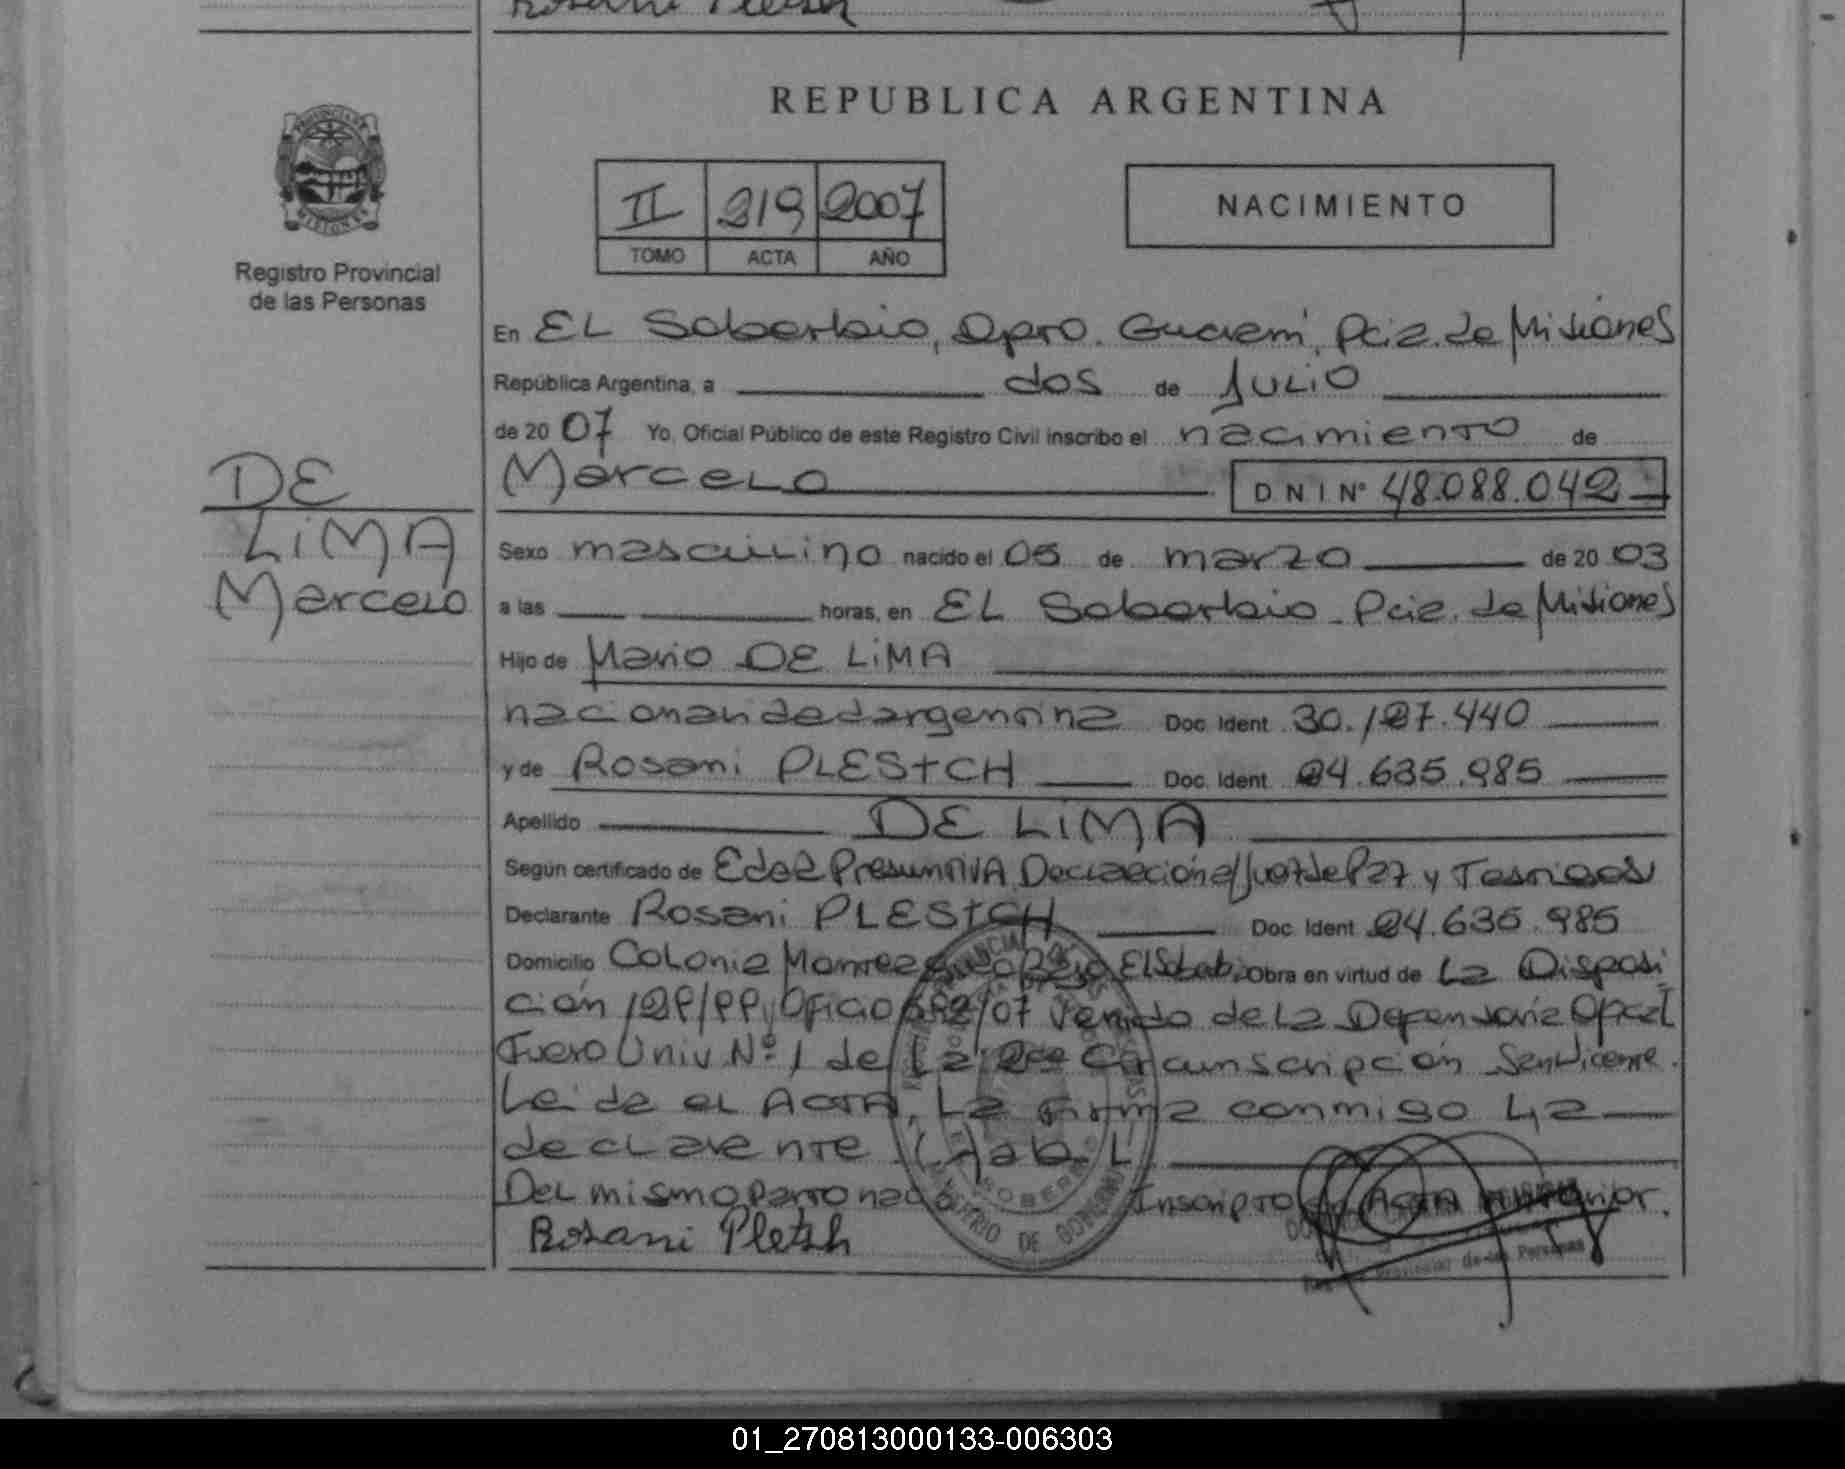 Rosani Pletsh
REPUBLICA ARGENTINA
PROVINCIA DE
MISIONES
Registro Provincial
de las Personas
II 219 2007
TOMO ACTA AÑO
NACIMIENTO
En EL Soberbio, Dpto. Guaraní, Pcia. de Misiones
República Argentina, a dos de JULIO
de 2007 Yo, Oficial Público de este Registro Civil inscribo el nacimiento de
Marcelo DNI Nº 48.088.042
DE
LiMA
Marcelo
Sexo masculino nacido el 05 de marzo de 2003
a las horas, en EL Soberbio - Pcia. de Misiones
Hijo de Mario DE LiMA
nacionalidad argentina Doc. Ident. 30.127.440
y de Rosani PLEStCH Doc. Ident. 24.635.985
Apellido DE LiMA
Según certificado de Edad Presuntiva Declaración a/Juez de Paz y Testigos
Declarante Rosani PLEStCH Doc. Ident. 24.635.985
Domicilio Colonia El Soberbio Obra en virtud de La Disposi
ción Oficio /07 Venido de La Defensoría Oficial
Fuero Univ. Nº 1 de La 2da Circunscripción San Vicente.
Leída el ACTA, La firma conmigo La
declarante
Del mismo parto nació Inscripto en ACTA Anterior.
Rosani Pletsh
MINISTERIO DE GOBIERNO
Provincial de las Personas
01_270813000133-006303